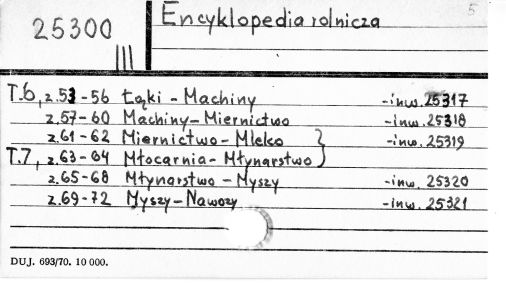 25300 III
Encyklopedia rolnicza 5
T.6, z.53-56 Łąki - Machiny -inw. 25317
z.57-60 Machiny - Miernictwo -inw. 25318
z.61-62 Miernictwo - Mleko -inw. 25319
T.7, z.63-64 Młocarnia - Młynarstwo
z.65-68 Młynarstwo - Myszy -inw. 25320
z.69-72 Myszy - Nawozy -inw. 25321
DUJ. 693/70. 10 000.